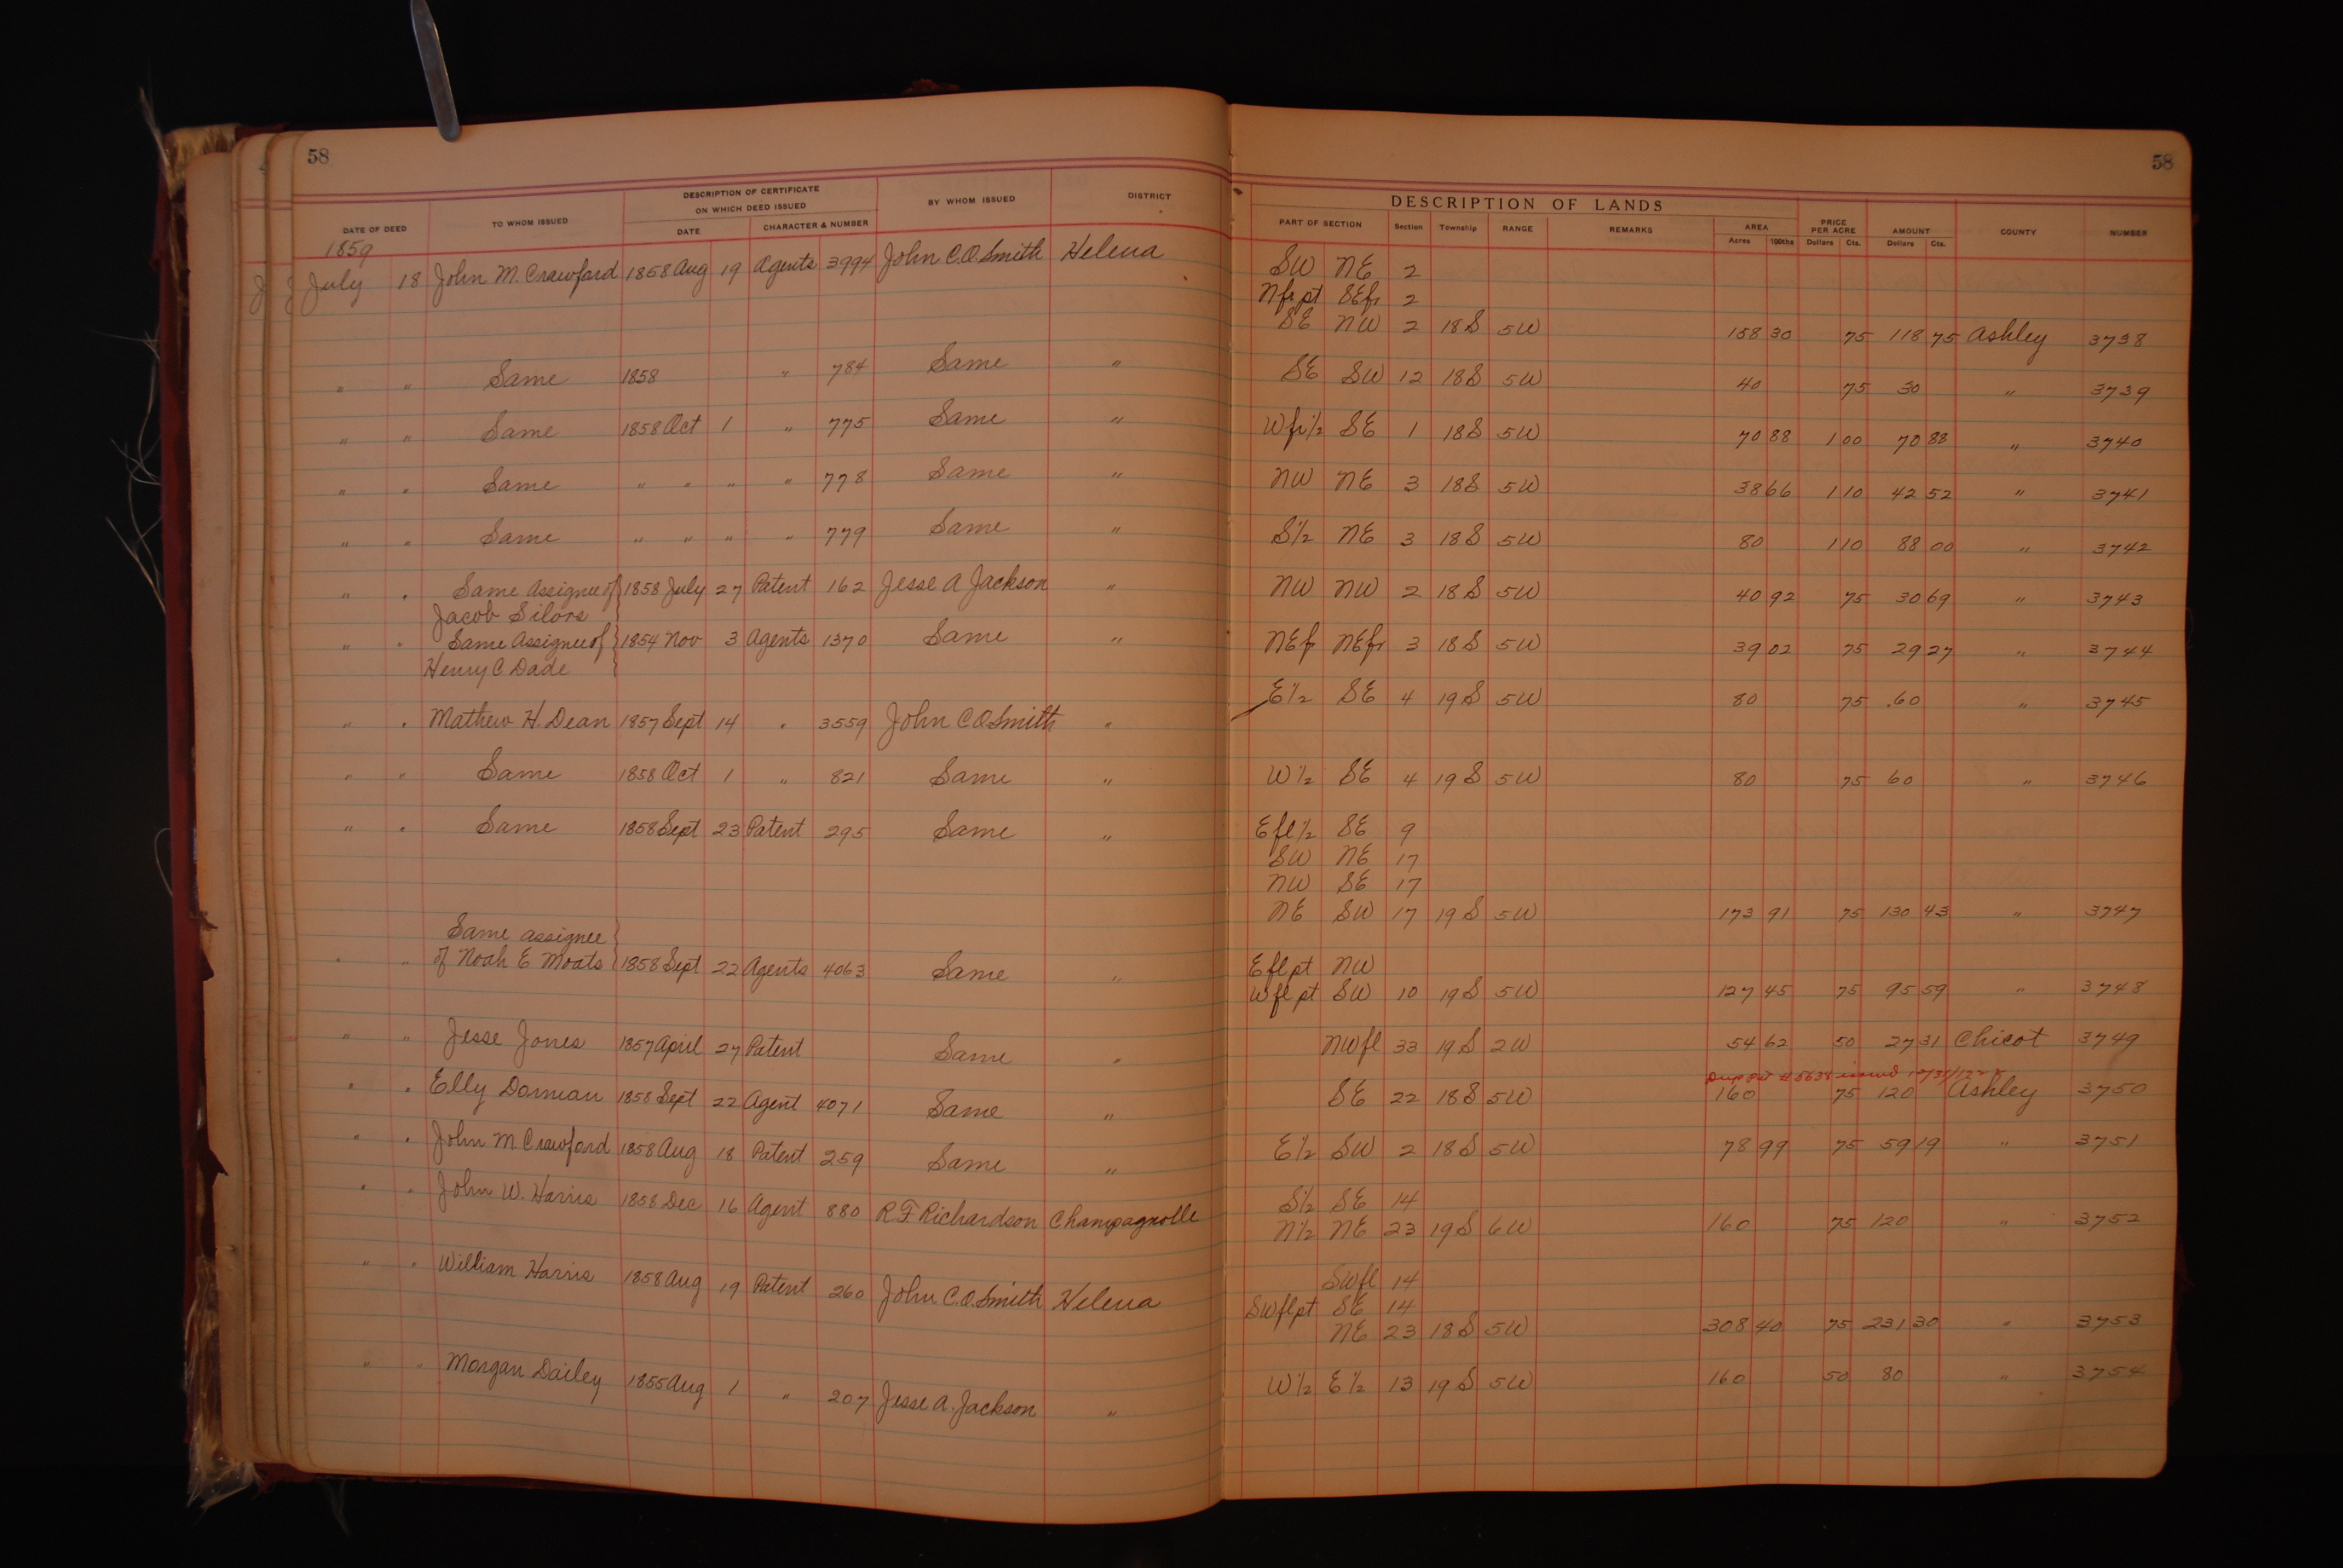 58 58
DESCRIPTION OF CERTIFICATE
ON WHICH DEED ISSUED
DATE OF DEED TO WHOM ISSUED DATE CHARACTER & NUMBER BY WHOM ISSUED DISTRICT
DESCRIPTION OF LANDS
PART OF SECTION Section Township RANGE REMARKS AREA PRICE PER ACRE AMOUNT COUNTY NUMBER
Acres 100ths Dollars Cts. Dollars Cts.
1859
July 18 John M. Crawford 1858 Aug 19 Agents 3994 John C.O. Smith Helena SW NE 2
Nfr pt SEfr 2
SE NW 2 18S 5W 158 30 75 118 75 Ashley 3738
" " Same 1858 " 784 Same " SE SW 12 18S 5W 40 75 30 " 3739
" " Same 1858 Oct 1 " 775 Same " Wfr½ SE 1 18S 5W 70 88 1 00 70 88 " 3740
" " Same " " " " 778 Same " NW NE 3 18S 5W 38 66 1 10 42 52 " 3741
" " Same " " " " 779 Same " S½ NE 3 18S 5W 80 1 10 88 00 " 3742
" " Same Assignee of } 1858 July 27 Patent 162 Jesse A Jackson " NW NW 2 18S 5W 40 92 75 30 69 " 3743
Jacob Silors
" " Same Assignee of } 1854 Nov 3 Agents 1370 Same " NEf NEfr 3 18S 5W 39 02 75 29 27 " 3744
Henry C Dade
" " Mathew H. Dean 1857 Sept 14 " 3559 John C O Smith " E½ SE 4 19S 5W 80 75 60 " 3745
" " Same 1858 Oct 1 " 821 Same " W½ SE 4 19S 5W 80 75 60 " 3746
" " Same 1858 Sept 23 Patent 295 Same " E fl ½ SE 9
SW NE 17
NW SE 17
NE SW 17 19S 5W 173 91 75 130 43 " 3747
Same assignee }
" " of Noah E Moats 1858 Sept 22 Agents 4063 Same " E fl pt NW
W fl pt SW 10 19S 5W 127 45 75 95 59 " 3748
" " Jesse Jones 1857 April 27 Patent Same " NW fl 33 19S 2W 54 62 50 27 31 Chicot 3749
Dup Pat # 5638 issued
" " Elly Dorman 1858 Sept 22 Agent 4071 Same " SE 22 18S 5W 160 75 120 Ashley 3750
" " John M Crawford 1858 Aug 18 Patent 259 Same " E½ SW 2 18S 5W 78 99 75 59 19 " 3751
" " John W. Harris 1858 Dec 16 Agent 880 R F Richardson Champagnolle S½ SE 14
N½ NE 23 19S 6W 160 75 120 " 3752
" " William Harris 1858 Aug 19 Patent 260 John C.O. Smith Helena SW fl 14
SW fl pt SE 14
NE 23 18S 5W 308 40 75 231 30 " 3753
" " Morgan Dailey 1855 Aug 1 " 207 Jesse A. Jackson " W½ E½ 13 19S 5W 160 50 80 " 3754